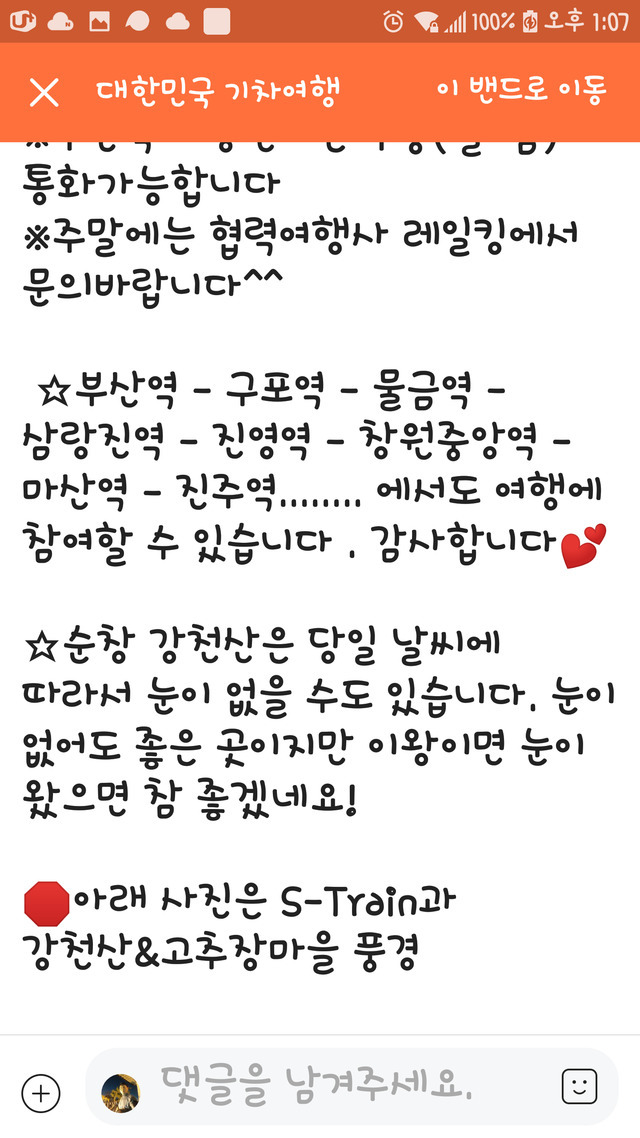 100% 오후 1:07
대한민국 기차여행 이 밴드로 이동
통화가능합니다
※주말에는 협력여행사 레일킹에서
문의바랍니다^^
☆부산역 - 구포역 - 물금역 -
삼랑진역 - 진영역 - 창원중앙역 -
마산역 - 진주역........ 에서도 여행에
참여할 수 있습니다 . 감사합니다💕
☆순창 강천산은 당일 날씨에
따라서 눈이 없을 수도 있습니다. 눈이
없어도 좋은 곳이지만 이왕이면 눈이
왔으면 참 좋겠네요!
🛑아래 사진은 S-Train과
강천산&고추장마을 풍경
댓글을 남겨주세요.